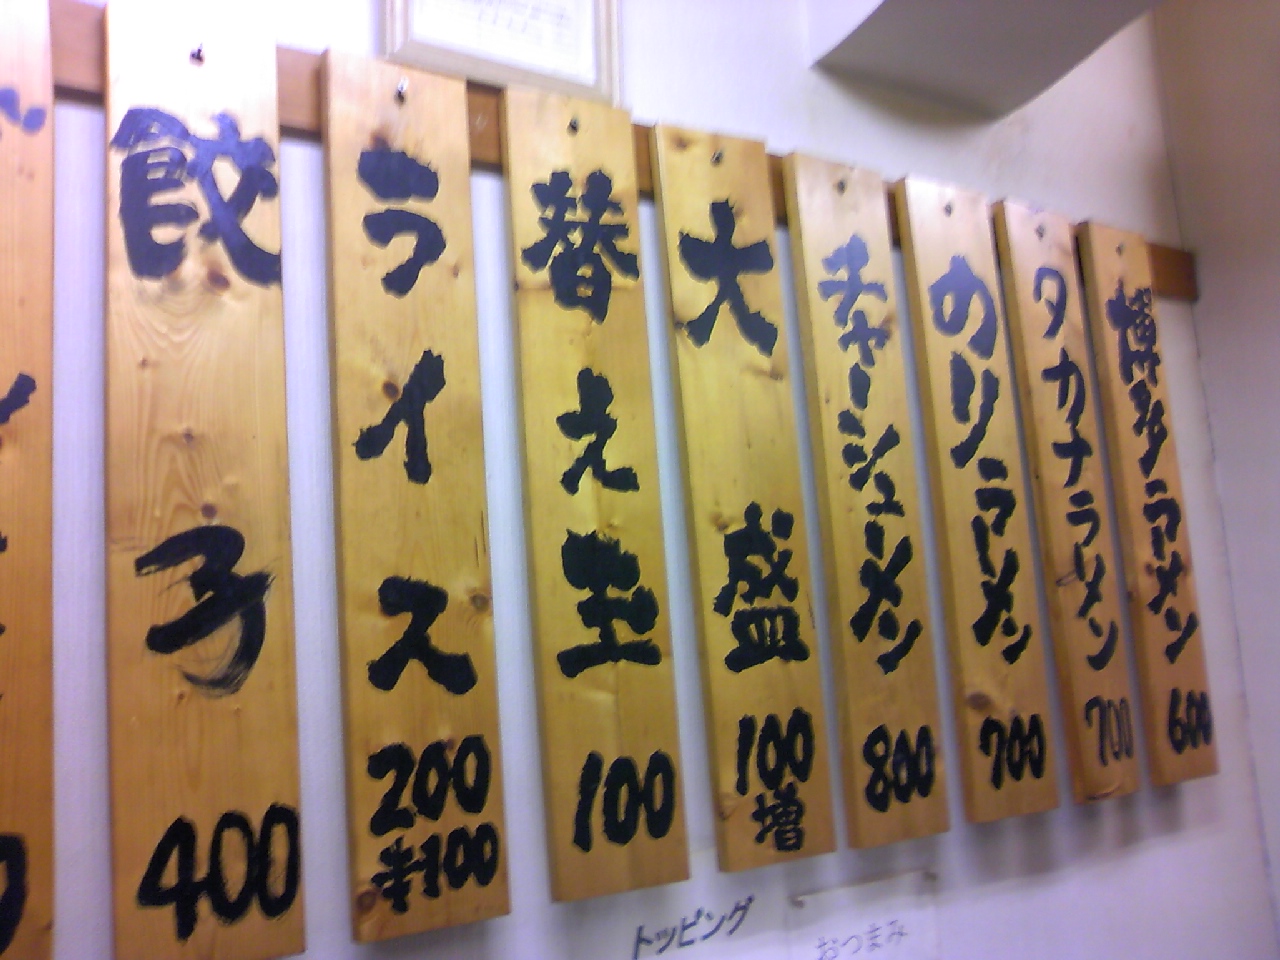 博多ラーメン
600
タカナラーメン
700
のりラーメン
700
チャーシューメン
800
大盛
100
増
替え玉
100
ライス
200
半100
餃子
400
トッピング
おつまみ